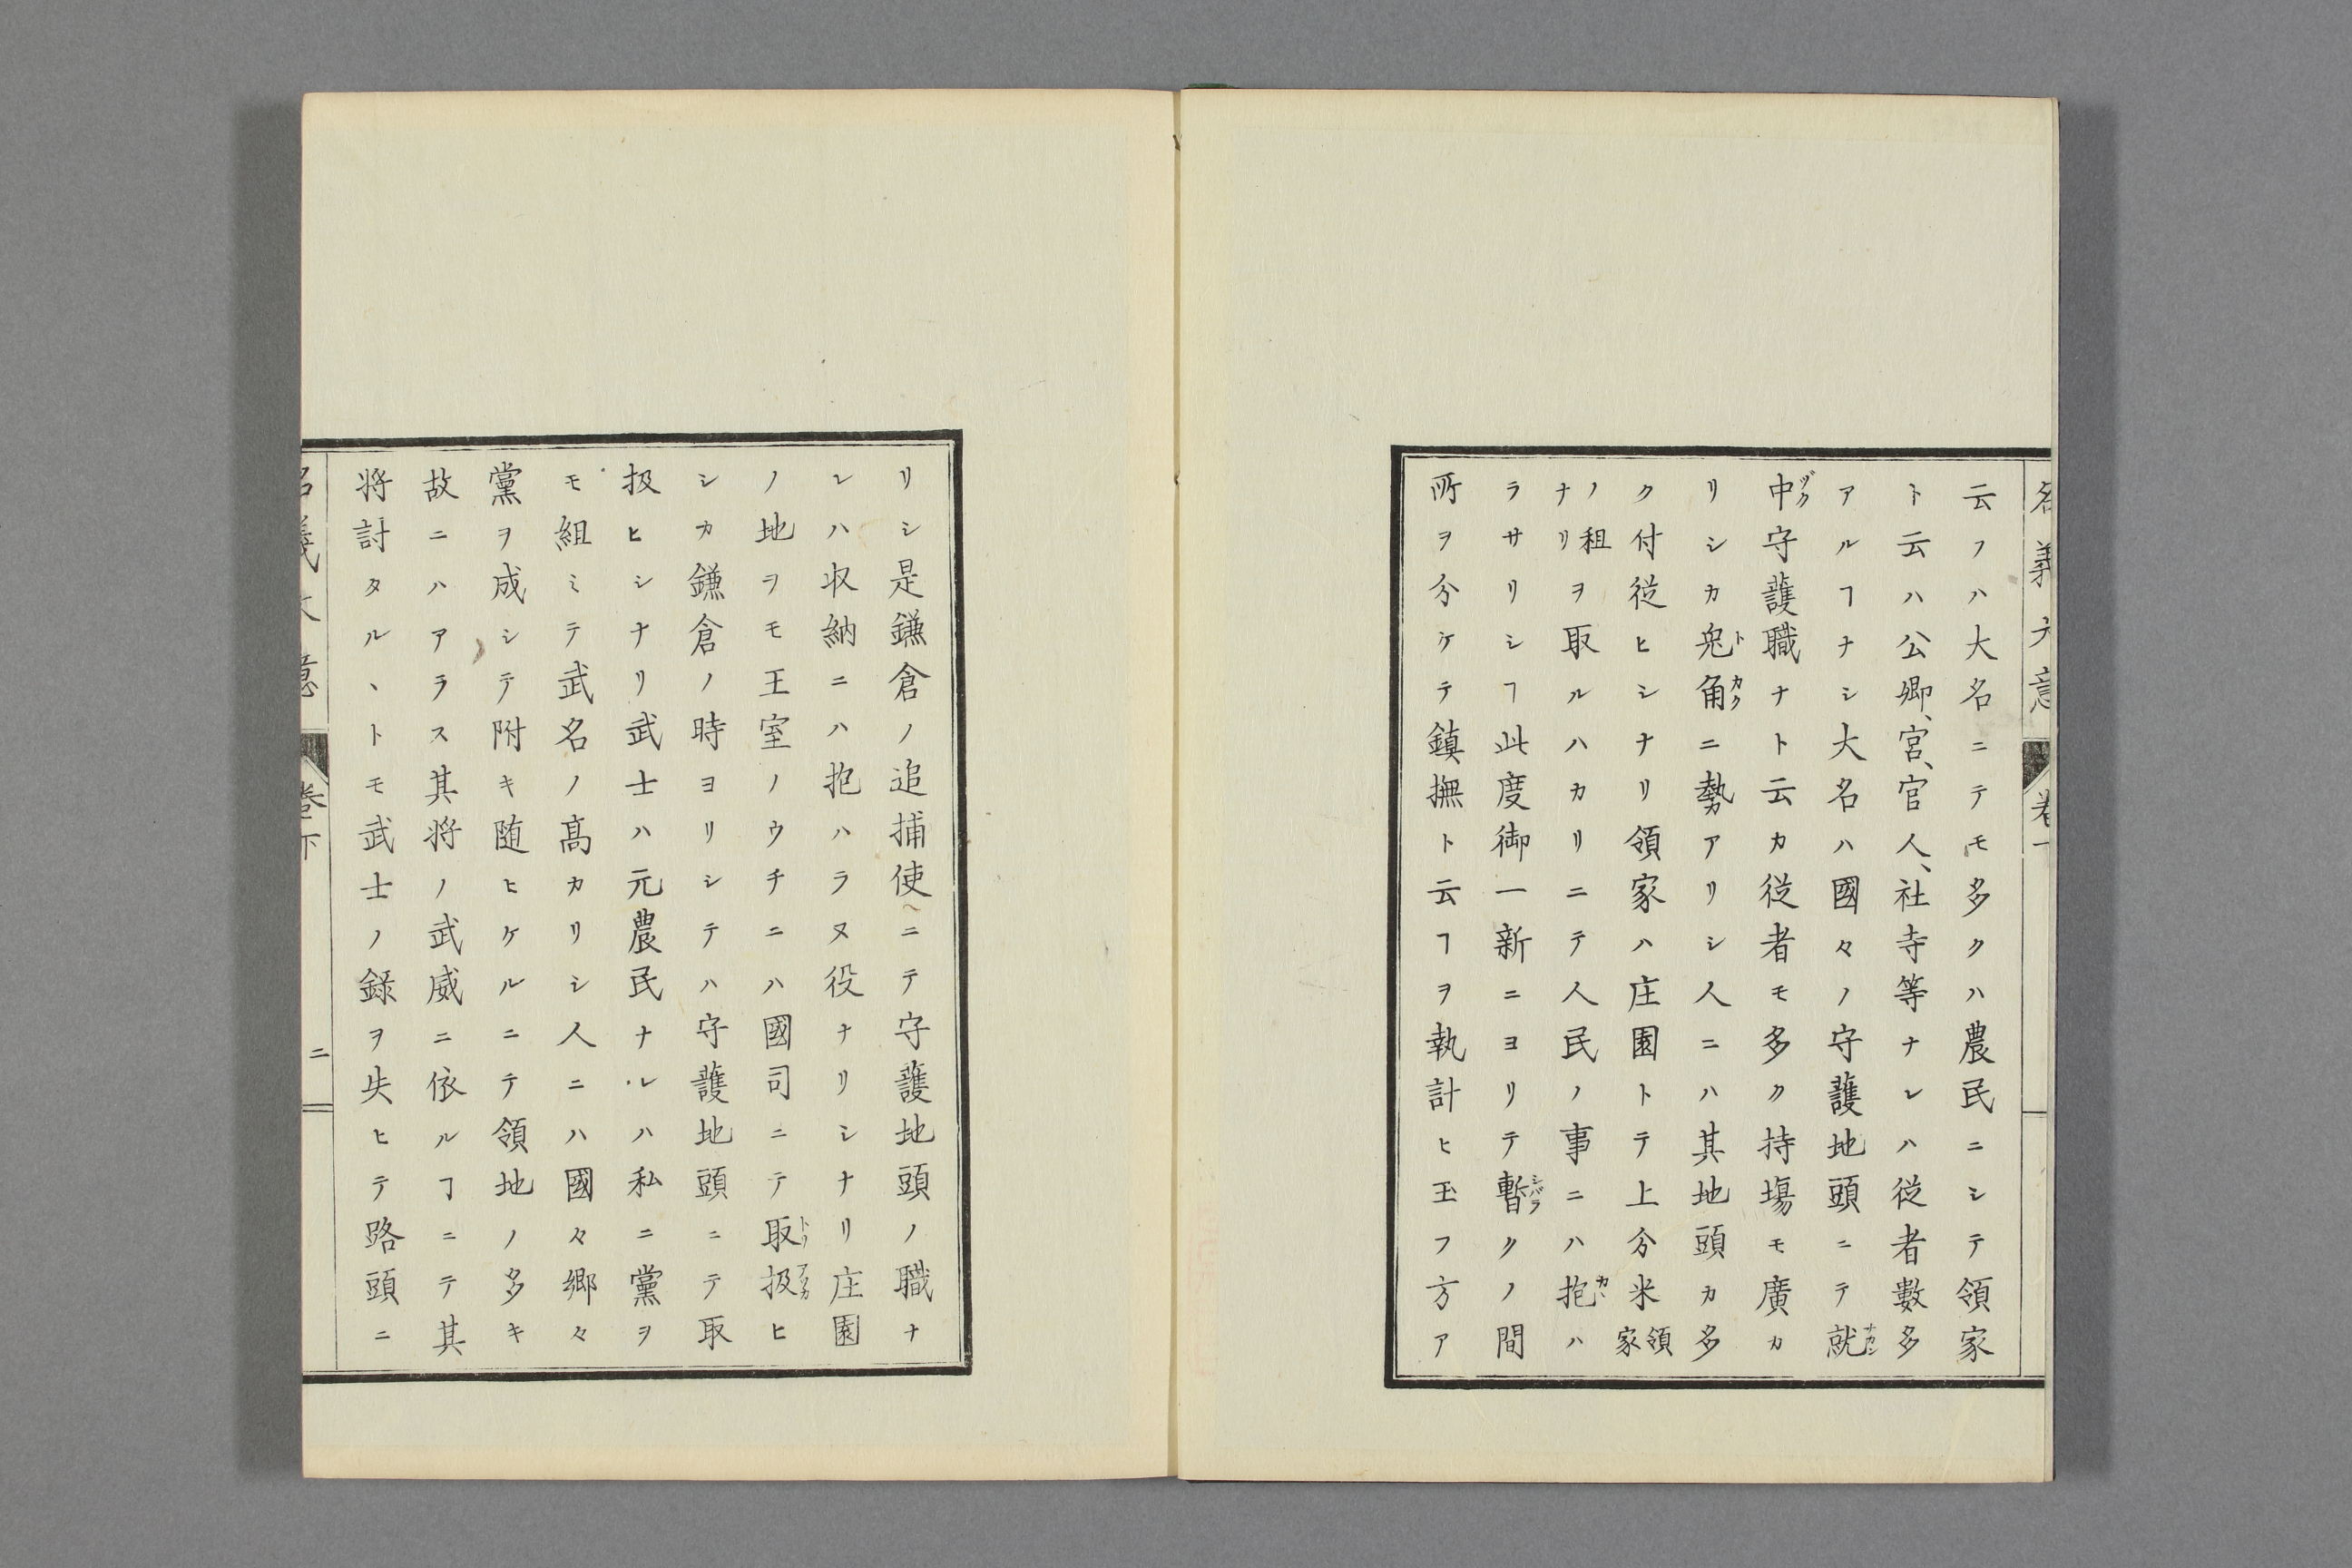 名義大意
云フハ大名ニテモ多クハ農民ニシテ領家
ト云ハ公卿、宮、官人、社寺等ナレハ従者數多
アルヿナシ大名ハ國々ノ守護地頭ニテ就ナカン
中ヅク守護職ナト云カ従者モ多ク持場モ廣カ
リシカ兎ト角カクニ勢アリシ人ニハ其地頭カ多
ク付従ヒシナリ領家ハ庄園トテ上分米領家
ノ租ナリヲ取ルハカリニテ人民ノ事ニハ抱カヽハ
ラサリシヿ此度御一新ニヨリテ暫シバラクノ間
所ヲ分ケテ鎮撫ト云ヿヲ執計ヒ玉フ方ア
リシ是鎌倉ノ追捕使ニテ守護地頭ノ職ナ
レハ収納ニハ抱ハラヌ役ナリシナリ庄園
ノ地ヲモ王室ノウチニハ國司ニテ取トリ扱アツカヒ
シカ鎌倉ノ時ヨリシテハ守護地頭ニテ取
扱ヒシナリ武士ハ元農民ナレハ私ニ黨ヲ
モ組ミテ武名ノ高カリシ人ニハ國々郷々
黨ヲ成シテ附キ随ヒケルニテ領地ノ多キ
故ニハアラス其将ノ武威ニ依ルヿニテ其
将討タルヽトモ武士ノ録ヲ失ヒテ路頭ニ
名義大意 卷下 二